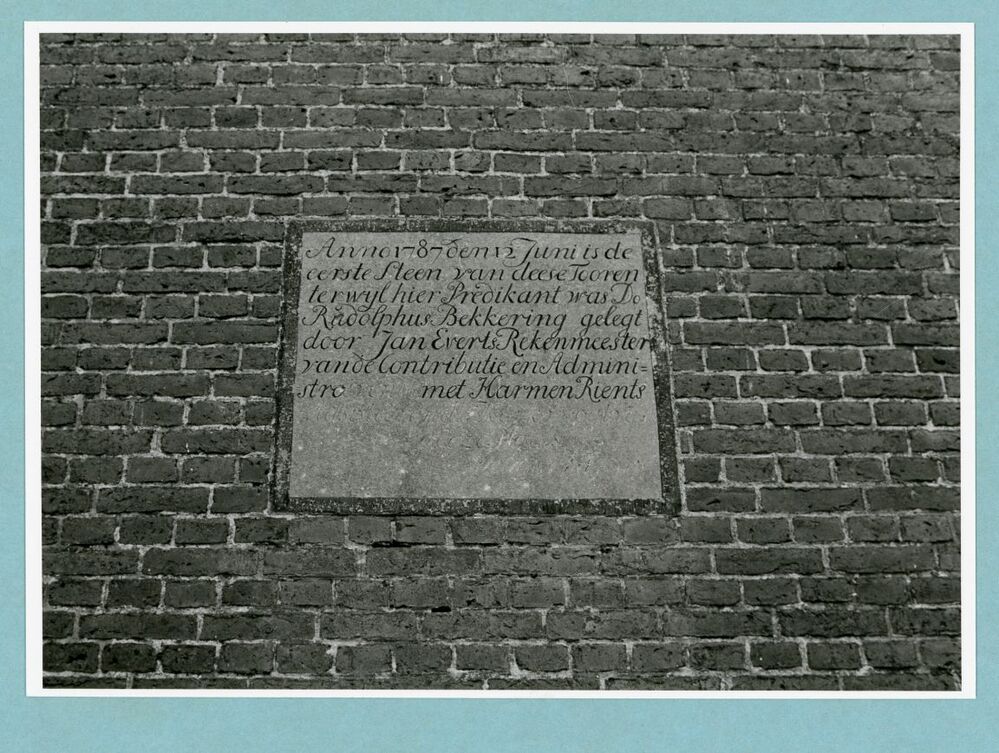 Anno 1787 den 12 Juni is de
eerste Steen van deese Tooren
terwyl hier Predikant was Do
Rudolphus Bekkering gelegt
door Jan Everts Rekenmeester
van de Contributie en Admini=
stro met Harmen Rients